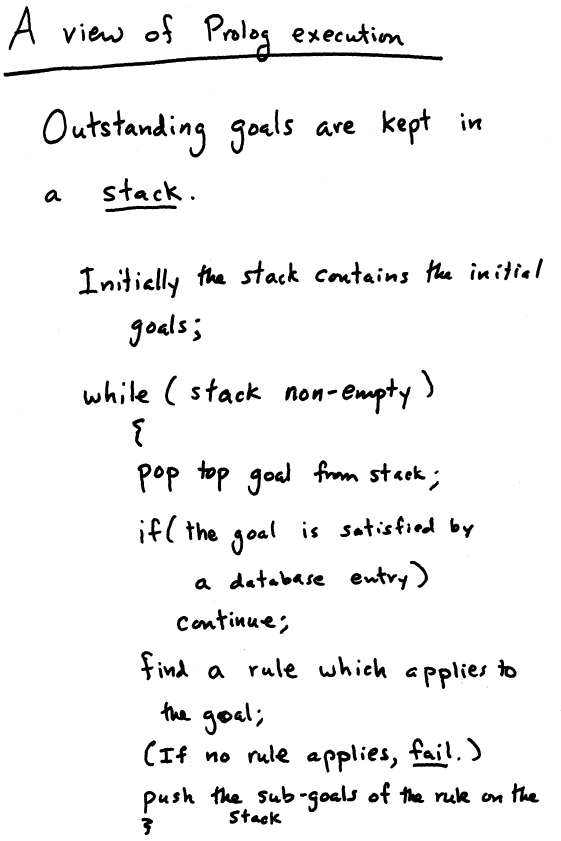 A view of Prolog execution
Outstanding goals are kept in
a stack.
Initially the stack contains the initial
goals;
while ( stack non-empty )
{
pop top goal from stack;
if( the goal is satisfied by
a database entry)
continue;
find a rule which applies to
the goal;
(If no rule applies, fail.)
push the sub-goals of the rule on the
stack
}